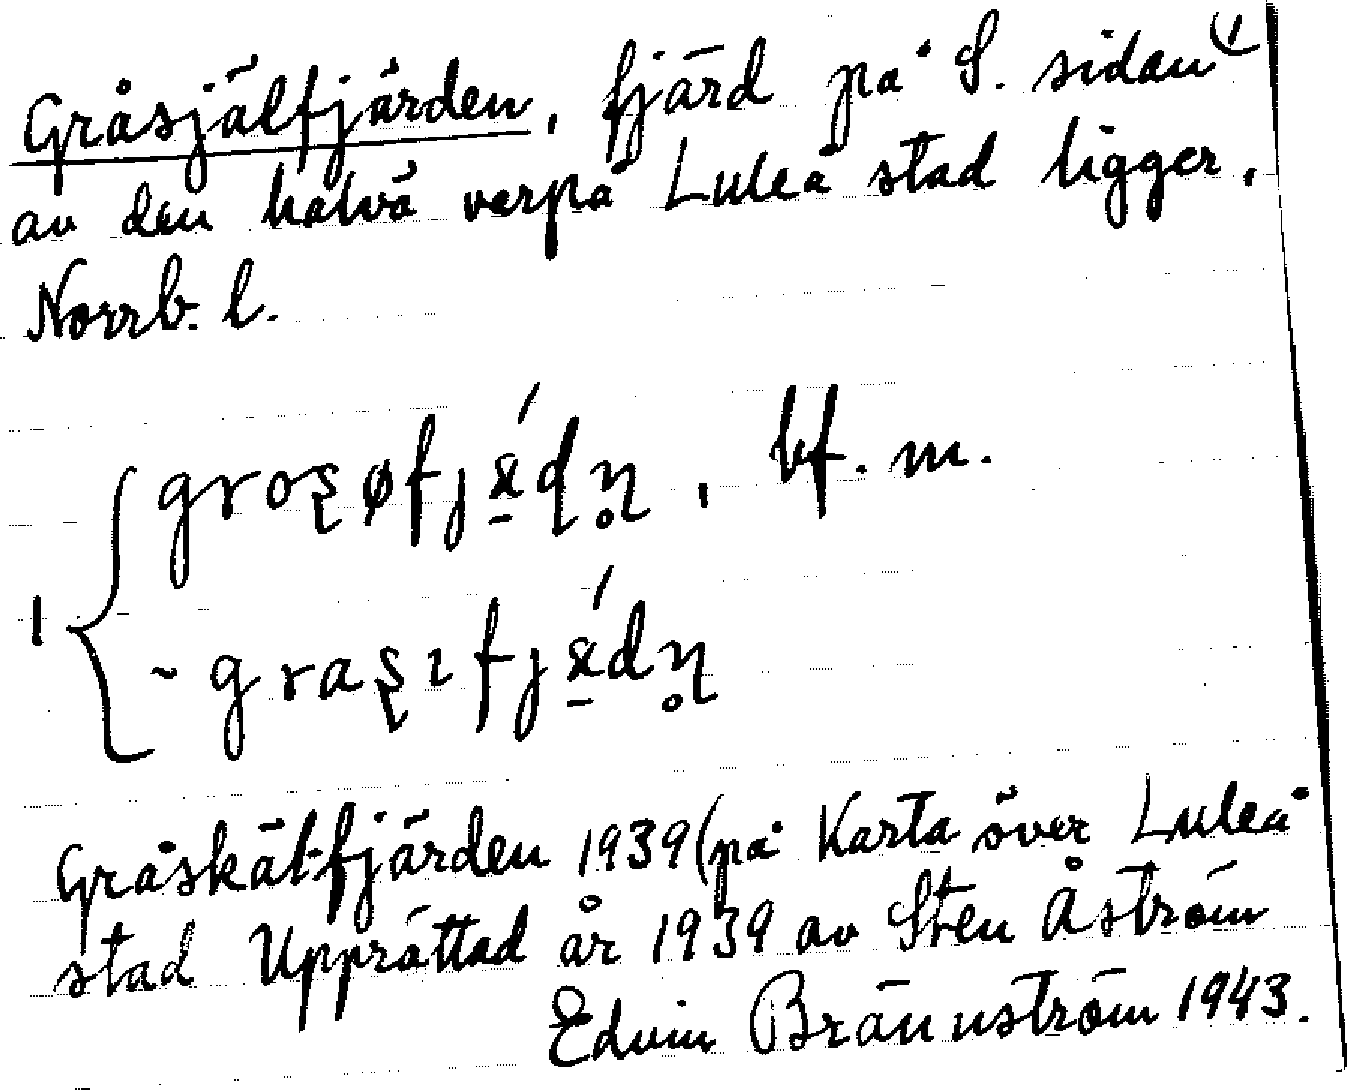 Gråsjälfjärden, fjärd på S. sidan 1
av den halvö varpå Luleå stad ligger.
Norrb. l.
groʂøfjǽ̱ɖɳ̥, bf. m.
1 { ~ graʂɪfjǽ̱dɳ̥
Gråskälfjärden 1939 (på Karta över Luleå
stad Upprättad år 1939 av Sten Åström
Edvin Brännström 1943.